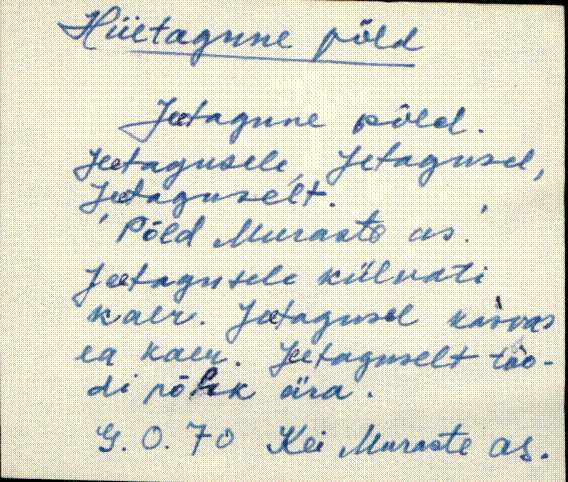 Hiietagune põld
Jeetagune põld.
Jeetagusele, Jetagusel,
Jeetaguselt.
Põld Muraste as.
Jeetagusele külvati
kaer. Jeetagusel kasvas
ea kaer. Jeetaguselt töö-
di põhk ära.
G. O. 70 Kei Muraste as.